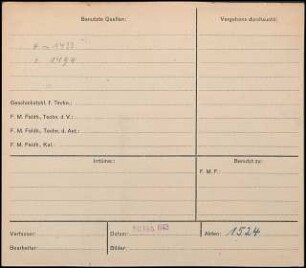 Benutzte Quellen:
Vergebens durchsucht:
1493
1494
Geschichtsbl. f. Techn.:
F. M. Feldh., Techn. d. V.:
F. M. Feldh., Techn. d. Ant.:
F. M. Feldh., Kal.:
Irrtüme:
Benutzt zu:
F. M. F.:
Verfasser:
Datum:
Akten: 1524
Bearbeiter:
Bilder: